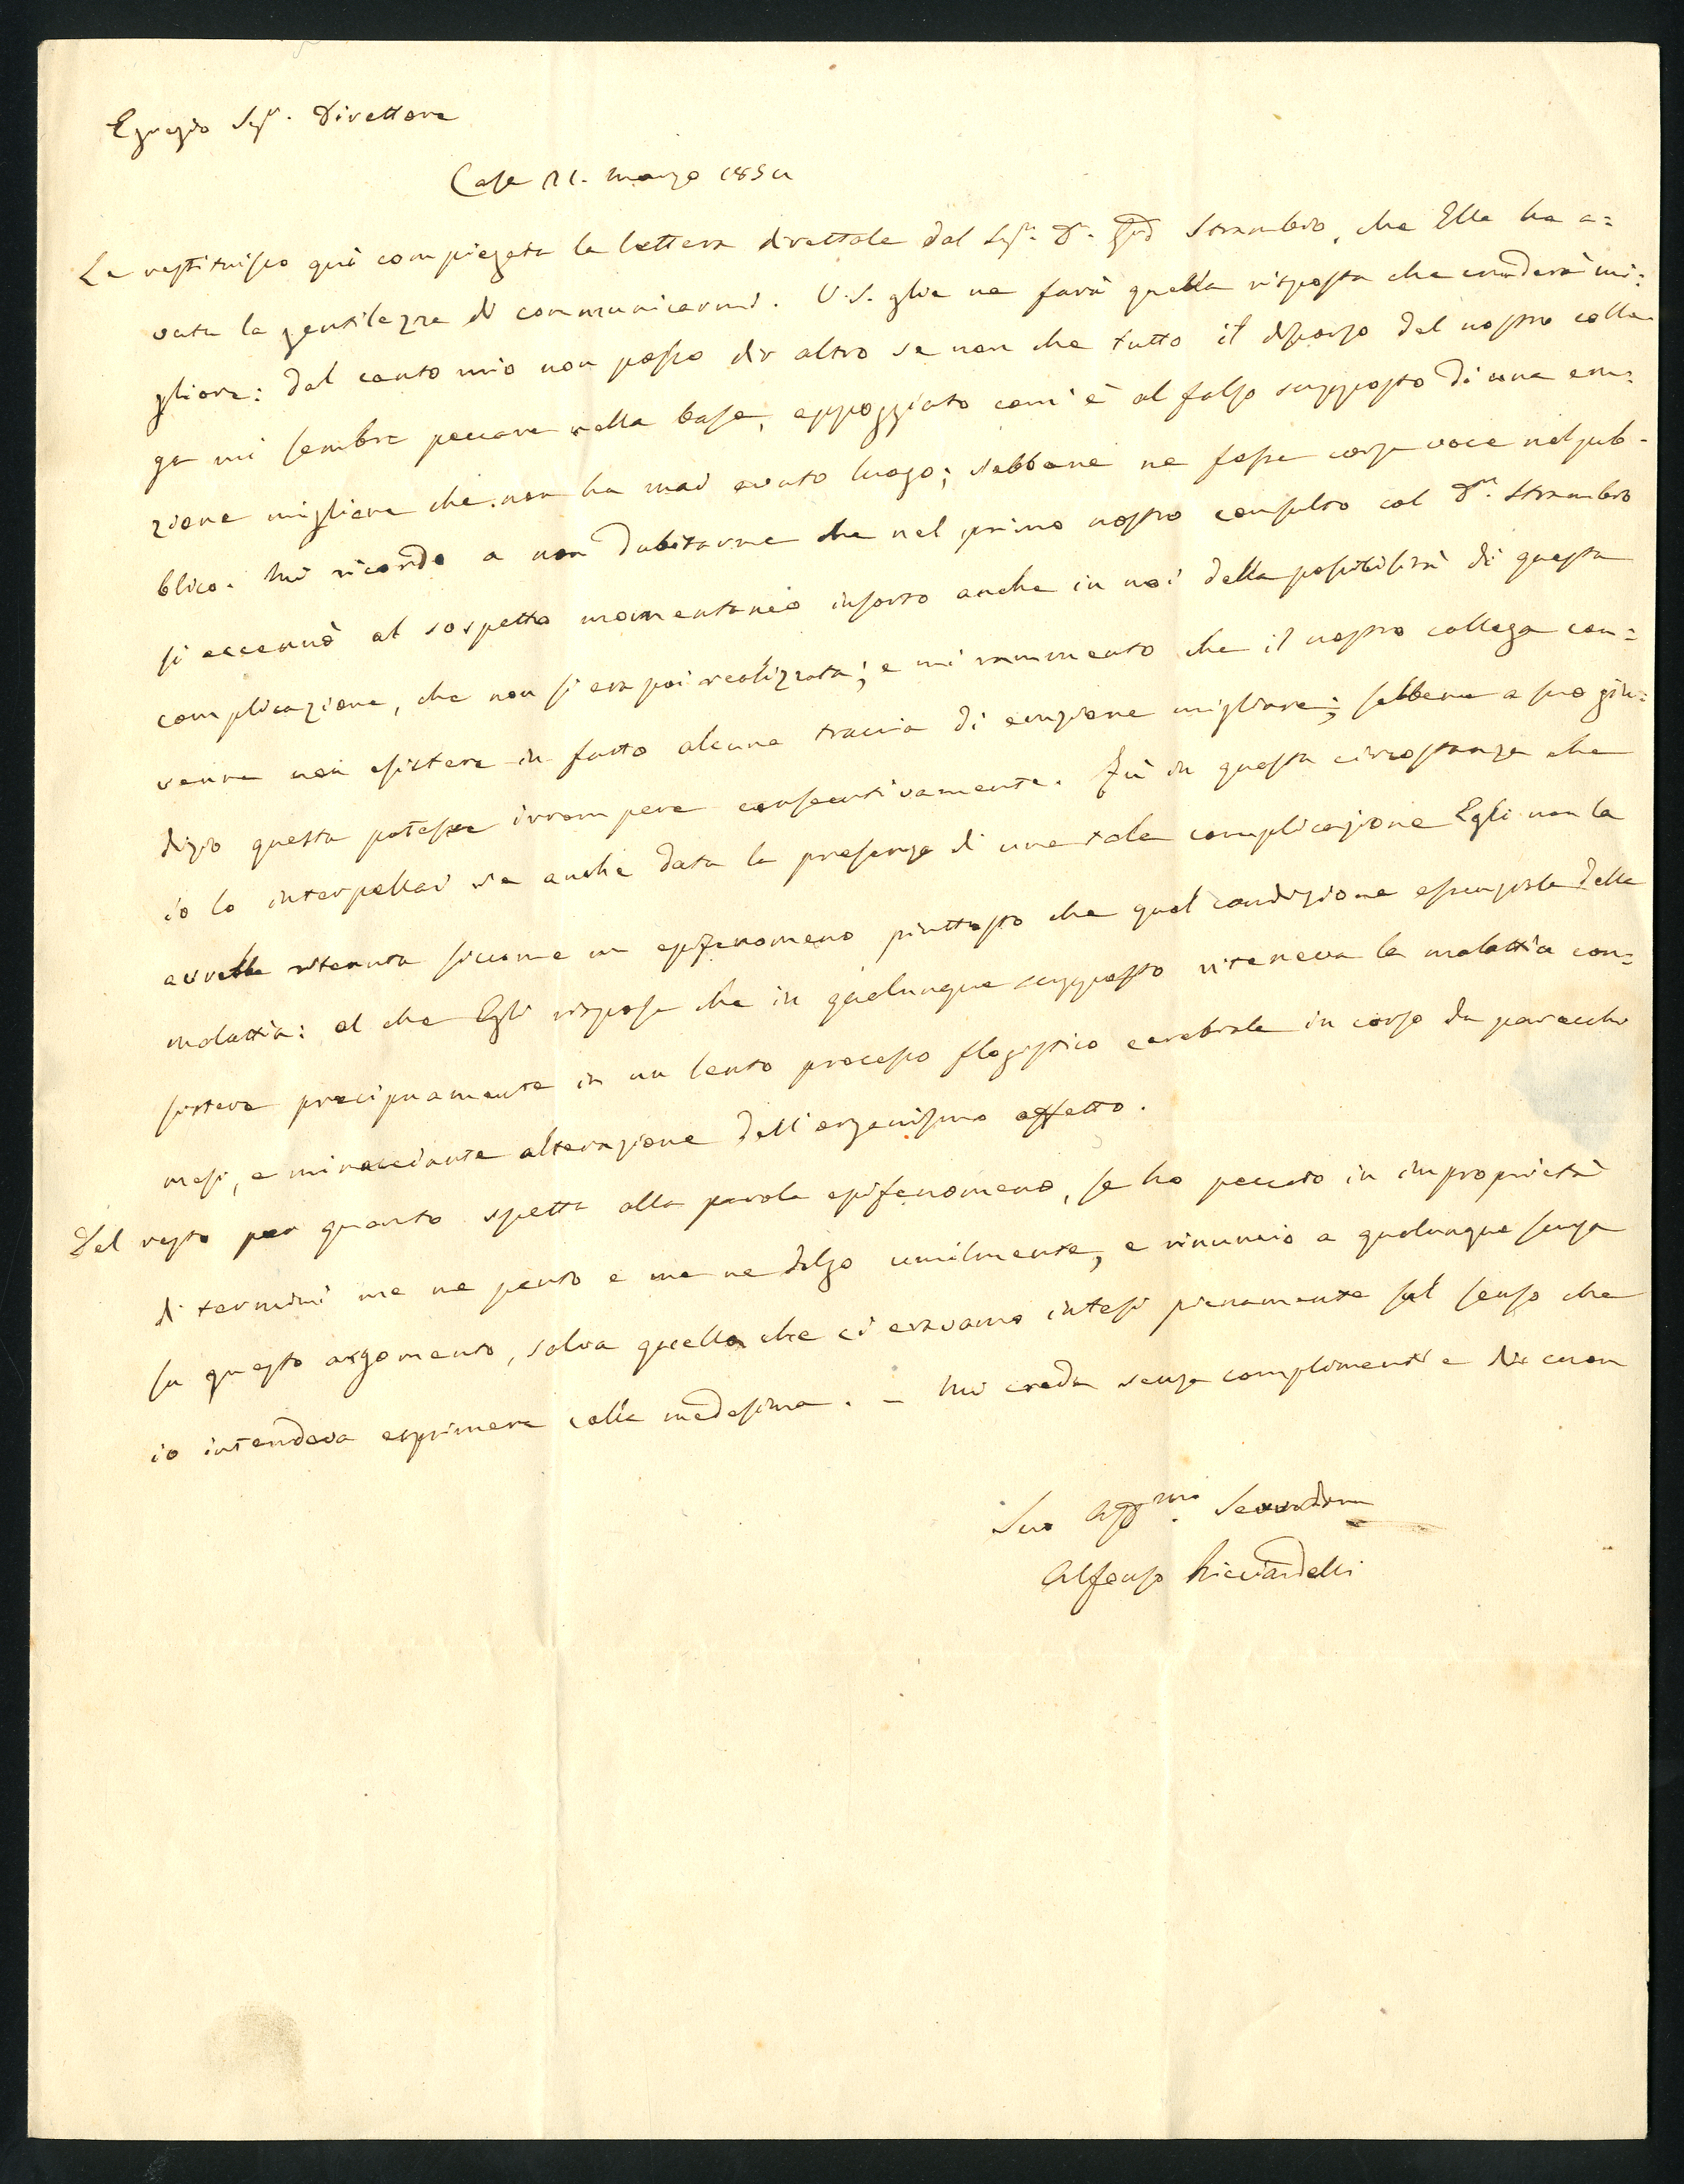 Egregio Sigr. Direttore
Casa 21. marzo 185
Le restituisco quì compiegata la lettera direttale dal Sigr. Dr. Strambio, che Ella ha a=
vuta la gentilezza di communicarmi. V.S. glie ne farà quella risposta che crederà mi=
gliore: dal canto mio non posso dir altro se non che tutto il discorso del nostro colle=
ga mi sembra peccare nella base, appoggiato com'è al falso supposto di una eru=
zione migliare che non ha mai avuto luogo; sebbene ne fosse corsa voce nel pub=
blico. Mi ricordo a non dubitarne che nel primo nostro consulto col Dr. Strambio
si accennò al sospetto momentaneo insorto anche in noi della possibilità di questa
complicazione, che non si era poi realizzata; e mi rammento che il nostro collega con=
venne non esistere in fatto alcuna traccia di eruzione migliare; sebbene a suo giu=
dizio questa potesse irrompere consecutivamente. Fù in questa circostanza che
io lo interpellai se anche data la presenza di una tale complicazione Egli non la
avrebbe ritenuta siccome un epifenomeno piuttosto che qual condizione essenziale della
malattia: al che Egli rispose che in qualunque supposto riteneva la malattia con=
sistere precipuamente in un lento processo flogistico cerebrale in corso da parecchi
mesi, e minacciante alterazione dell'organismo affetto.
Del resto per quanto spetta alla parola epifenomeno, se ho peccato in improprietà
di termini me ne pento e me ne dolgo umilmente, e rinuncio a qualunque scusa
su questo argomento, salva quella che ci eravamo intesi pienamente sul senso che
io intendeva esprimere colla medesima. - Mi creda senza complimenti e di cuore
Suo Affmo. Servitore
Alfonso Ricciardelli